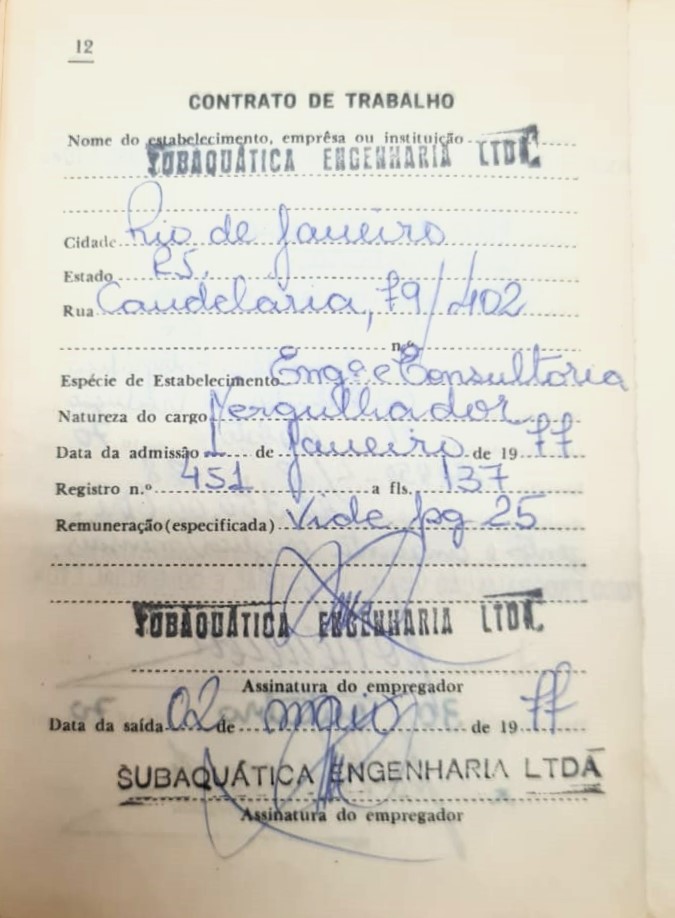 12
CONTRATO DE TRABALHO
Nome do estabelecimento, emprêsa ou instituição
SUBAQUÁTICA ENGENHARIA LTDA
Cidade Rio de Janeiro
Estado RJ.
Rua Candelária, 79/402
n.º
Espécie de Estabelecimento Engª e Consultoria
Natureza do cargo Mergulhador
Data da admissão 1 de Janeiro de 19 77
Registro n.º 451 a fls. 137
Remuneração (especificada) Vide pg 25
SUBAQUÁTICA ENGENHARIA LTDA.
Assinatura do empregador
Data da saída 02 de maio de 19 77
SUBAQUÁTICA ENGENHARIA LTDA
Assinatura do empregador